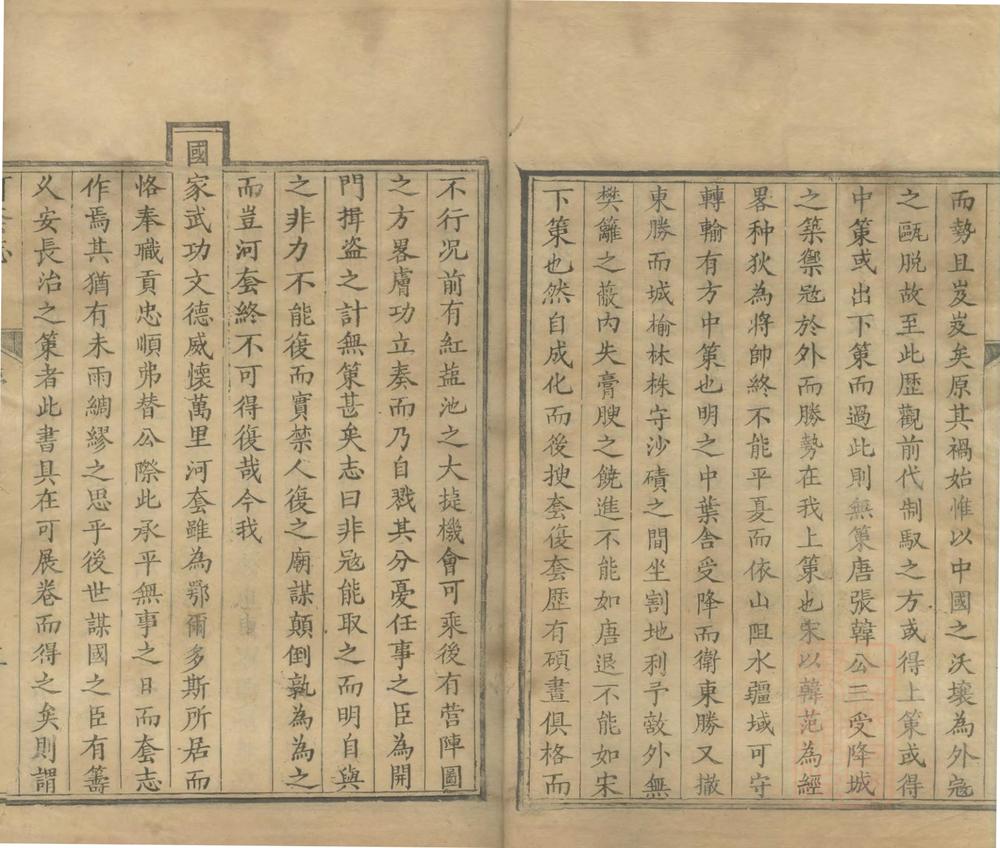 而勢且岌岌矣原其禍始惟以中國之沃壤為外寇
之甌脫故至此歷觀前代制馭之方或得上策或得
中策或出下策而過此則無策唐張韓公三受降城
之築禦寇於外而勝勢在我上策也宋以韓范為經
畧种狄為將帥終不能平夏而依山阻水疆域可守
轉輸有方中策也明之中葉舍受降而衛東勝又撤
東勝而城榆林株守沙磧之間坐割地利予敵外無
樊籬之蔽內失膏腴之饒進不能如唐退不能如宋
下策也然自成化而後搜套復套歷有碩畫俱格而
不行況前有紅鹽池之大捷機會可乘後有營陣圖
之方畧膚功立奏而乃自戮其分憂任事之臣為開
門揖盜之計無策甚矣志曰非寇能取之而明自與
之非力不能復而實禁人復之廟謀顛倒孰為為之
而豈河套終不可得復哉今我
國家武功文德威懷萬里河套雖為鄂爾多斯所居而
恪奉職貢忠順弗替公際此承平無事之日而套志
作焉其猶有未雨綢繆之思乎後世謀國之臣有籌
久安長治之策者此書具在可展卷而得之矣則謂